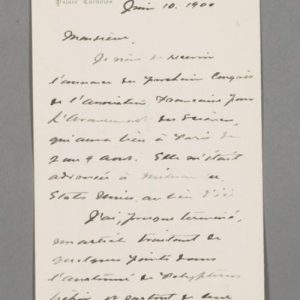 Palais
Juin 10. 1900
Monsieur.
Je viens de recevoir
l'annonce du prochain Congrès
de l'Association Française pour
l'Avancement des Sciences,
qui aura lieu à Paris du
2 au 9 août. Elle m'était
adressée à
États Unis, au lieu d'ici
J'ai, presque terminé,
un article traitant de
quelques points dans
l'anatomie de Polypterus
et surtout de